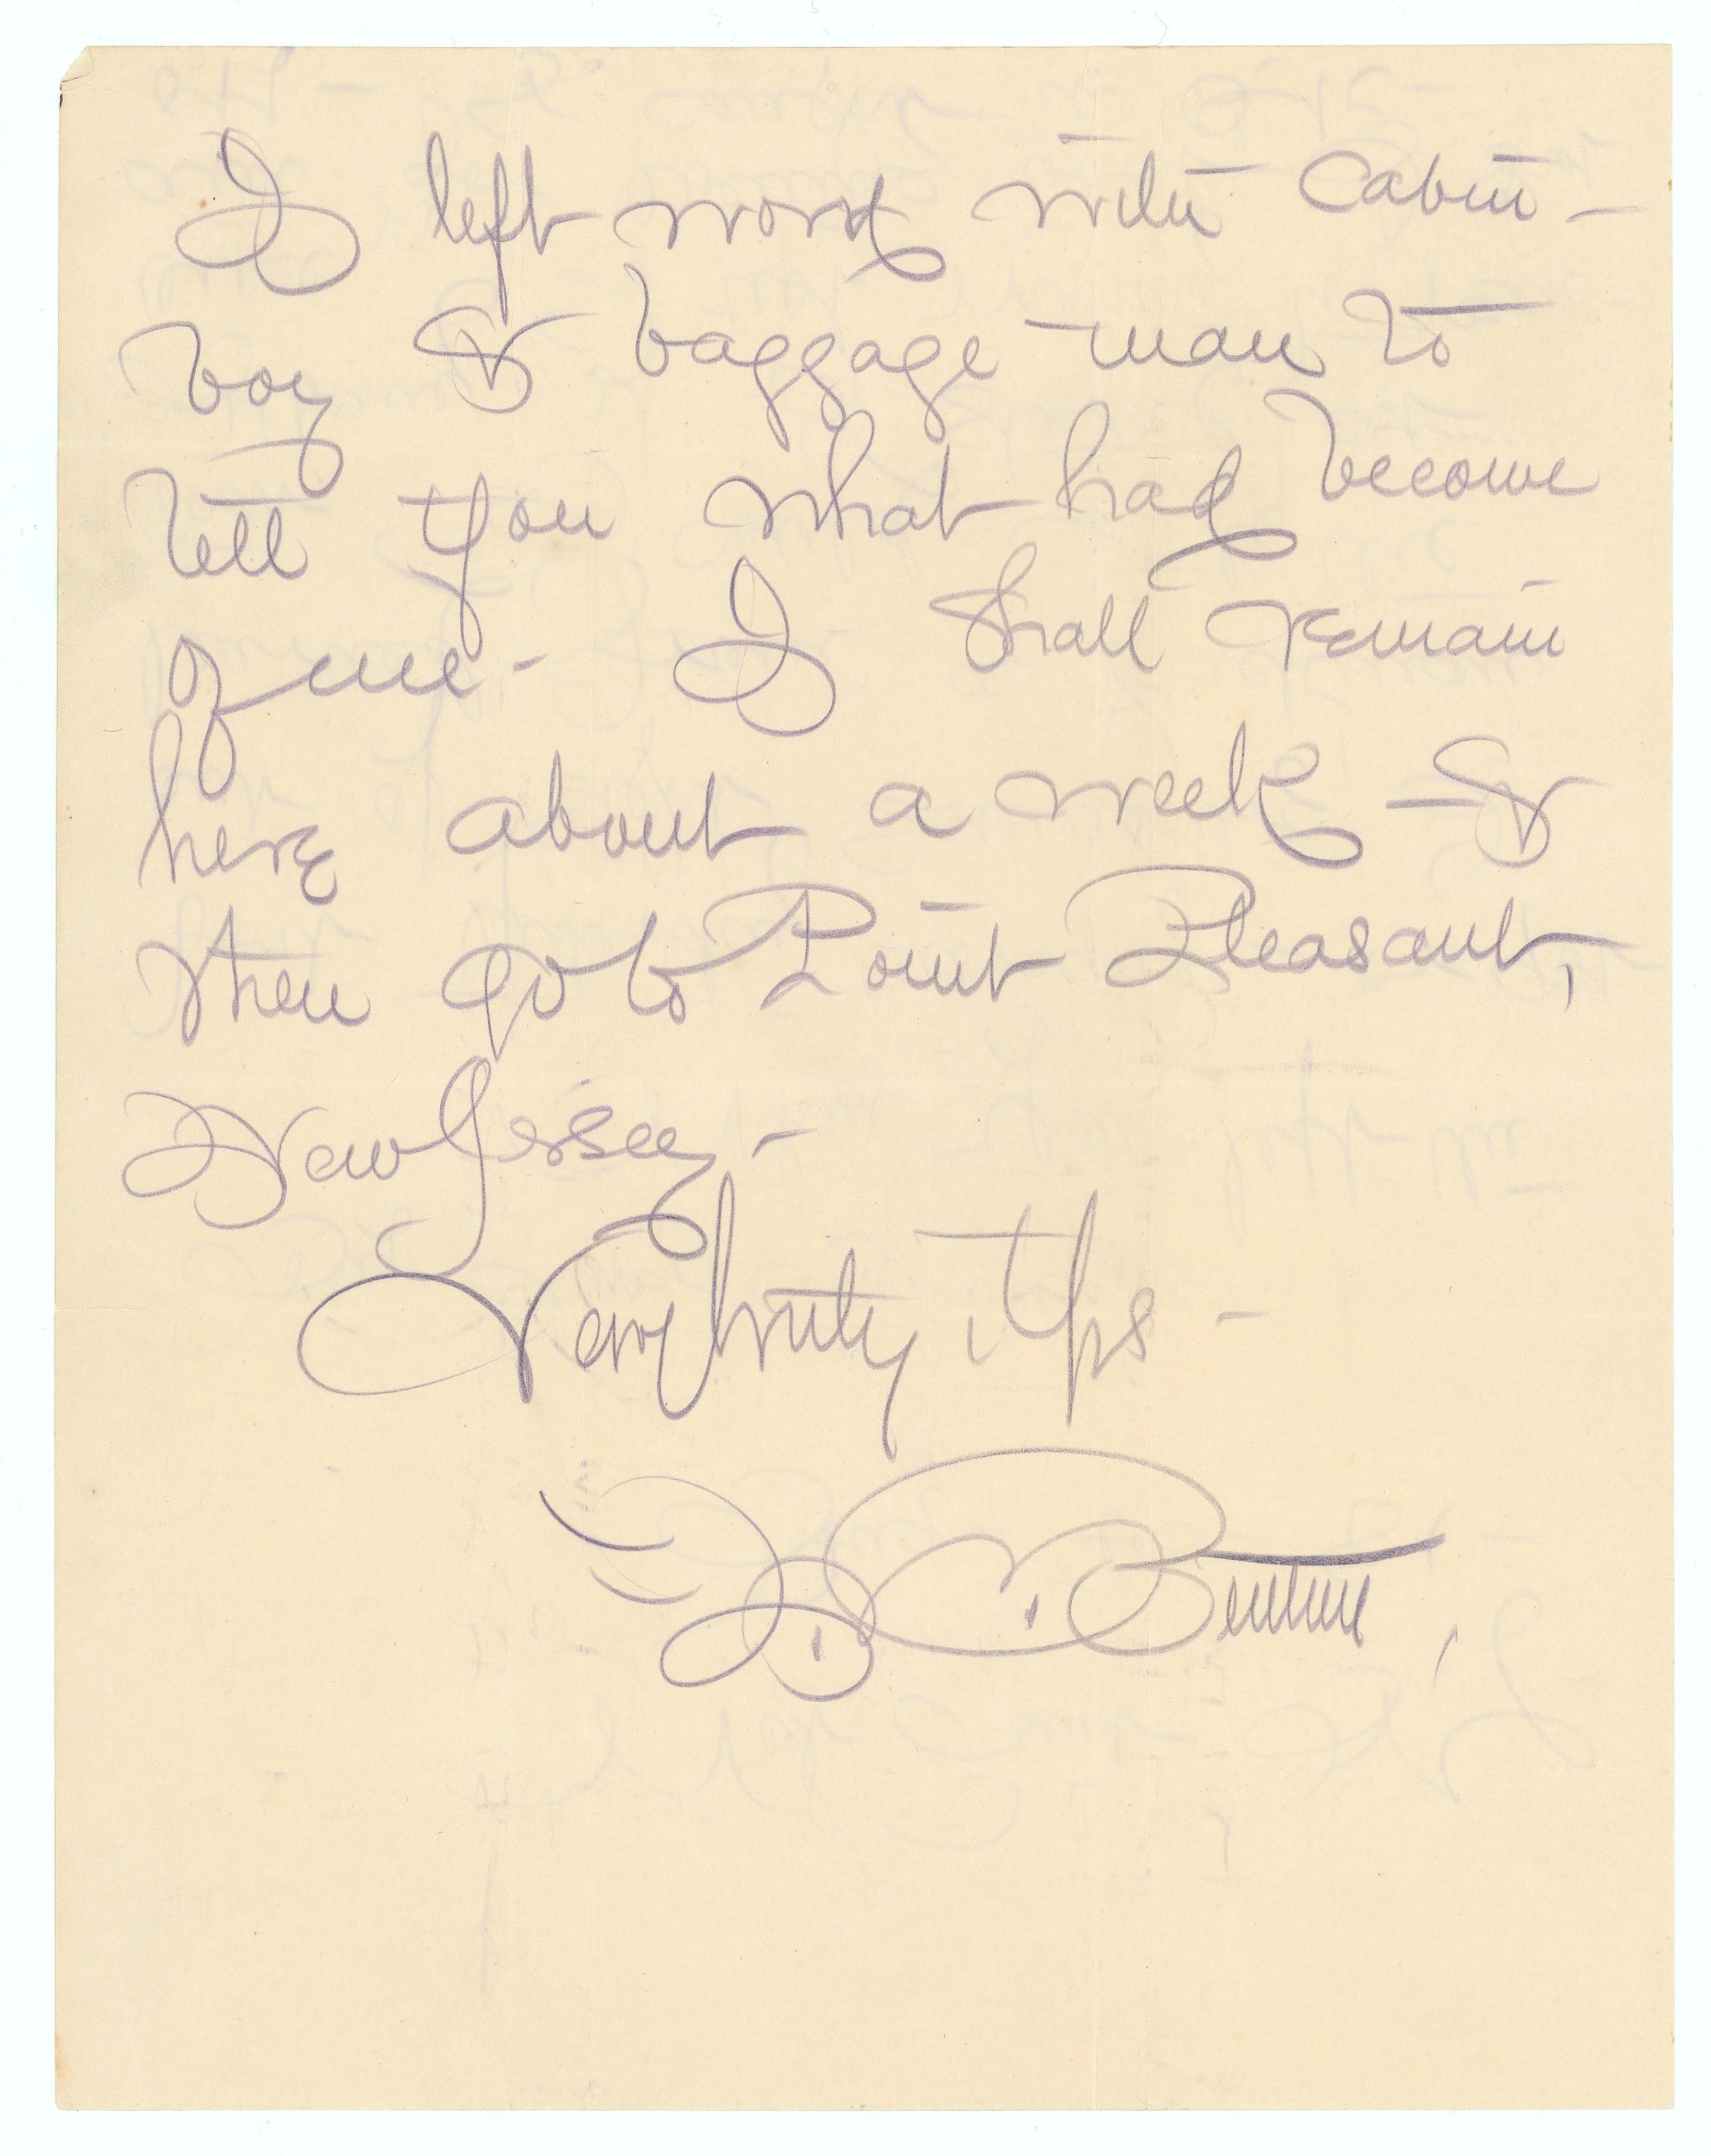 I left word with Cabin-
boy & baggage-man to
tell you what had become
of me - I shall remain
here about a week - &
then go to Point Pleasant,
New Jersey -
Very truly Yrs -